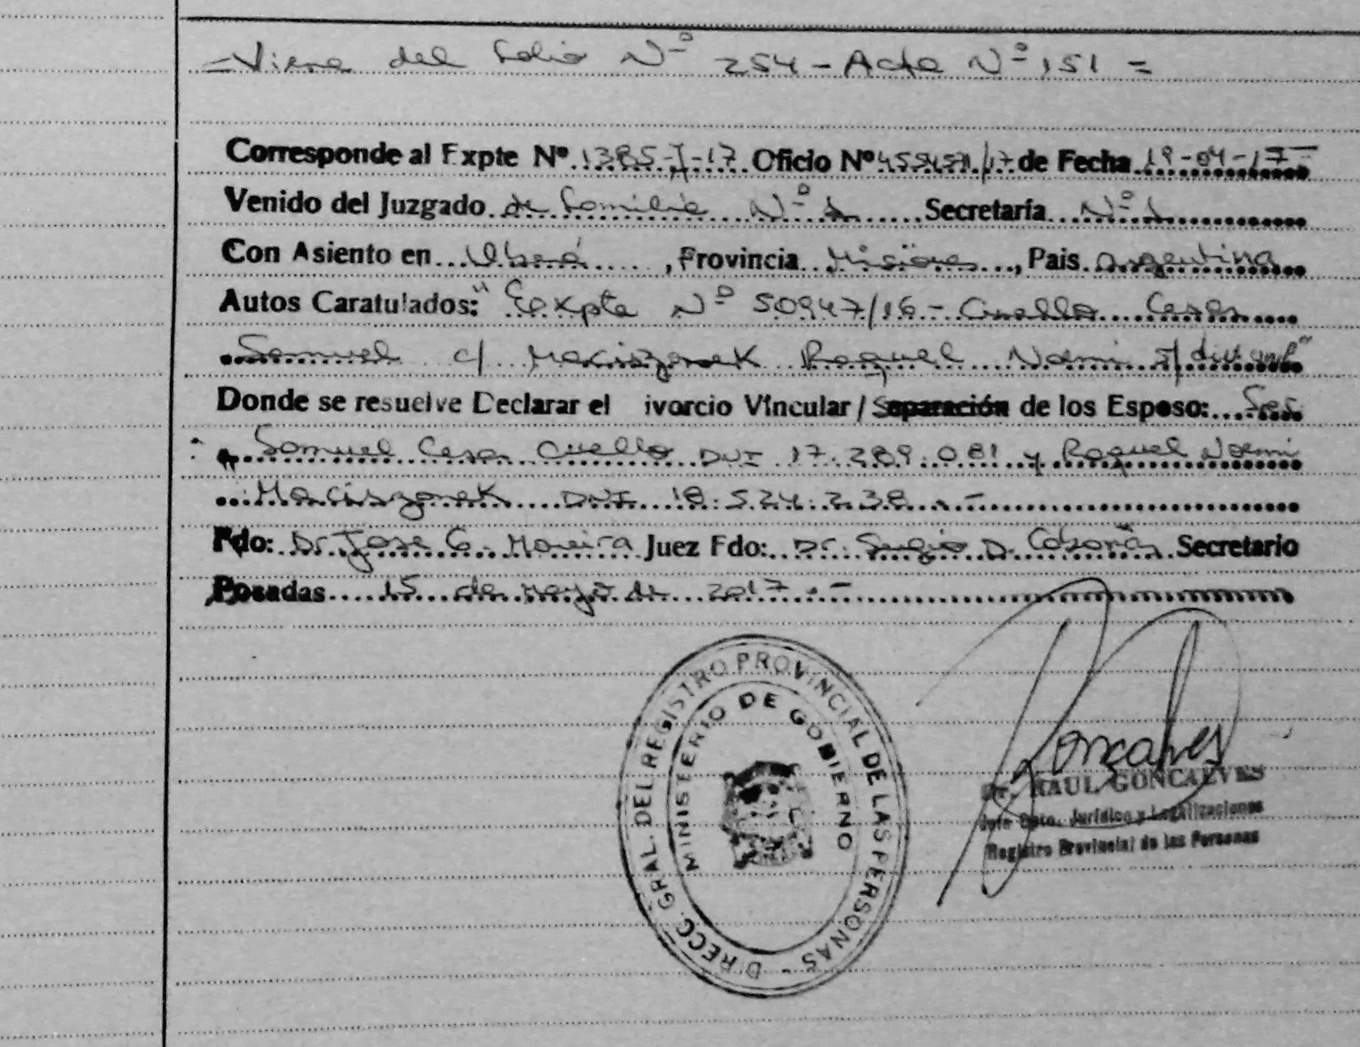 -Viene del folio Nº 254 - Acta Nº 151 =
Corresponde al Expte Nº 1385-J-17 Oficio Nº /17 de Fecha 19-04-17-
Venido del Juzgado de Familia Nº 1 Secretaría Nº 1
Con Asiento en Oberá, Provincia Misiones, Pais Argentina
Autos Caratulados: "Expte Nº 50947/16 - Cuello Cesar
Samuel c/ Maciszonek Raquel Noemi s/
Donde se resuelve Declarar el ivorcio Vincular / Separación de los Esposo: Sres
Samuel Cesar Cuello DNI 17.289.081 y Raquel Noemi
Maciszonek DNI 18.524.238.-
Fdo: Dr. Jose G. Moreira Juez Fdo: Dr. Sergio D. Secretario
Posadas 15 de Mayo de 2017.-
DIRECC. GRAL. DEL REGISTRO PROVINCIAL DE LAS PERSONAS -
MINISTERIO DE GOBIERNO
Goncalves
Dr. RAUL GONCALVES
Jefe Dpto. Jurídico y Legalizaciones
Registro Provincial de las Personas